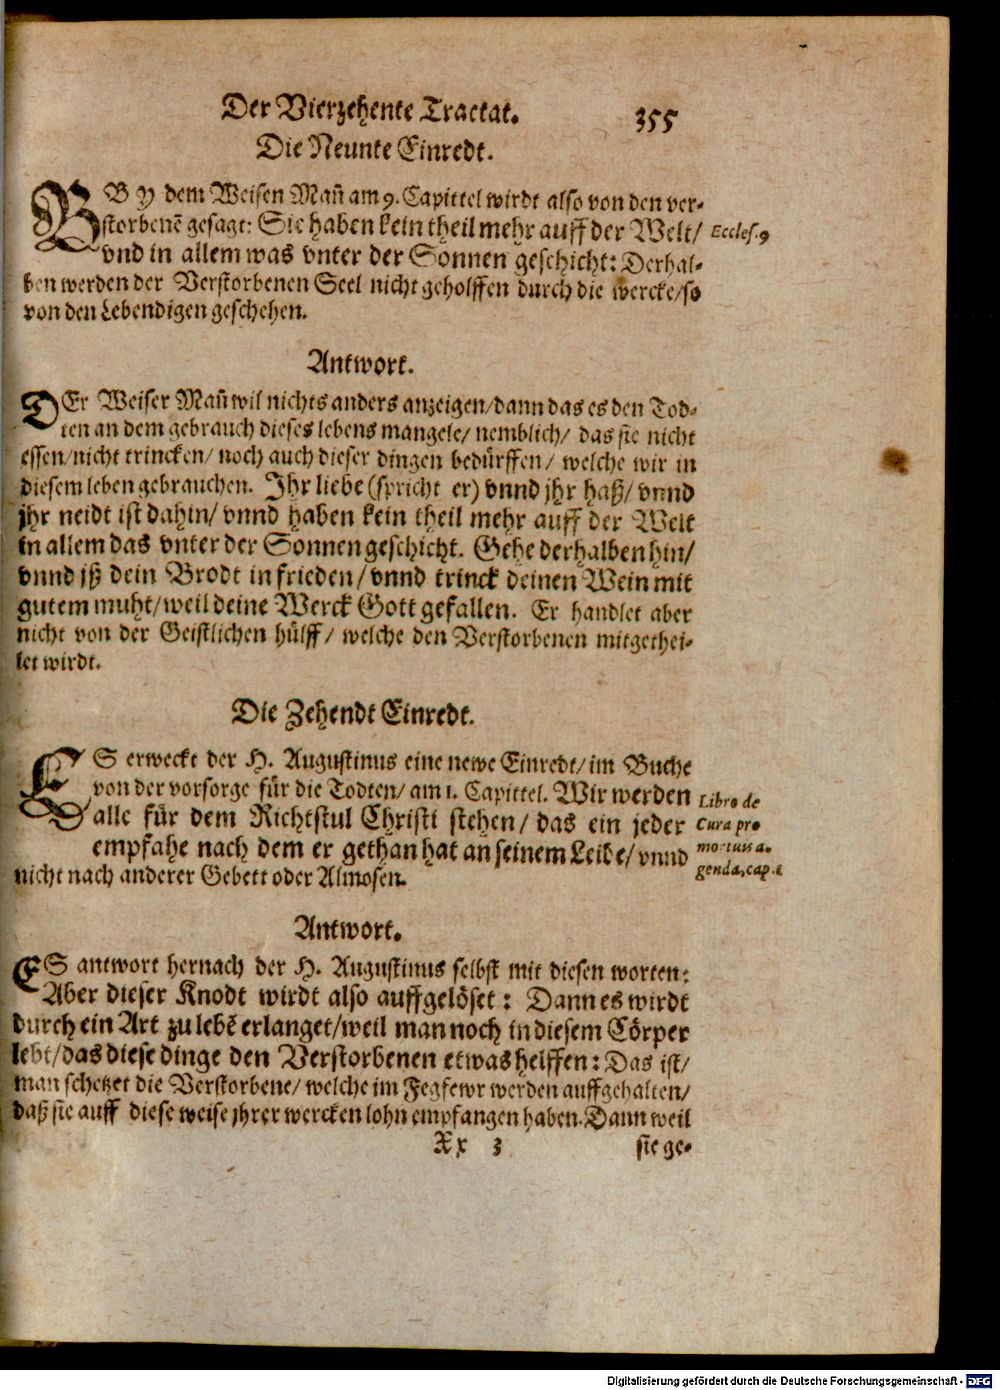 Der Vierzehente Tractat. 355
Die Neunte Einredt.
BEy dem Weisen Mañ am 9. Capittel wirdt also von den ver-
storbenẽ gesagt: Sie haben kein theil mehr auff der Welt/ Eccles. 9
vnd in allem was vnter der Sonnen geschicht: Derhal-
ben werden der Verstorbenen Seel nicht geholffen durch die wercke/ so
von den Lebendigen geschehen.
Antwort.
DEr Weiser Mañ wil nichts anders anzeigen/ dann das es den Tod-
ten an dem gebrauch dieses lebens mangele/ nemblich/ das sie nicht
essen/ nicht trincken/ noch auch dieser dingen bedürffen/ welche wir in
diesem leben gebrauchen. Ihr liebe (spricht er) vnnd jhr haß/ vnnd
jhr neidt ist dahin/ vnnd haben kein theil mehr auff der Welt
in allem das vnter der Sonnen geschicht. Gehe derhalben hin/
vnnd jß dein Brodt in frieden/ vnnd trinck deinen Wein mit
gutem muht/ weil deine Werck Gott gefallen. Er handlet aber
nicht von der Geistlichen hülff/ welche den Verstorbenen mitgethei-
let wirdt.
Die Zehendt Einredt.
ES erweckt der H. Augustinus eine newe Einredt/ im Buche
von der vorsorge für die Todten/ am 1. Capittel. Wir werden Libro de
alle für dem Richtstul Christi stehen/ das ein jeder Cura pro
empfahe nach dem er gethan hat an seinem Leibe/ vnnd mortuis a-
nicht nach anderer Gebett oder Almosen. genda, cap. 1
Antwort.
ES antwort hernach der H. Augustinus selbst mit diesen worten:
Aber dieser Knodt wirdt also auffgelöset: Dann es wirdt
durch ein Art zu lebẽ erlanget/ weil man noch in diesem Cörper
lebt/ das diese dinge den Verstorbenen etwas helffen: Das ist/
man schetzet die Verstorbene/ welche im Fegfewr werden auffgehalten/
daß sie auff diese weise jhrer wercken lohn empfangen haben. Dann weil
Xx 3 sie ge-
Digitalisierung gefördert durch die Deutsche Forschungsgemeinschaft - DFG